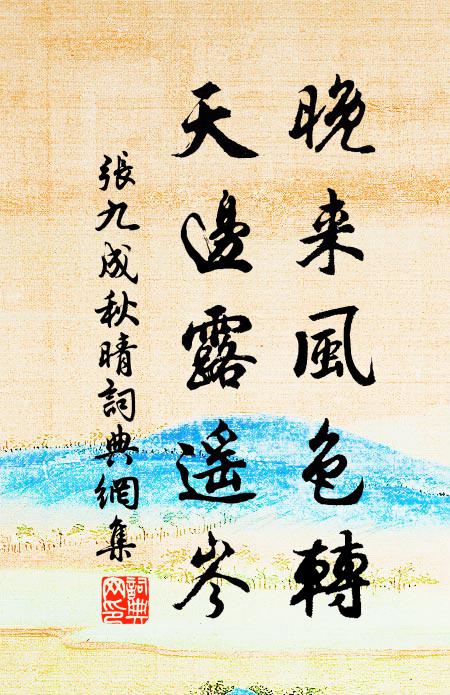 晚来風色轉
天邊露遥岑
張九成秋晴詞典網集
詞典